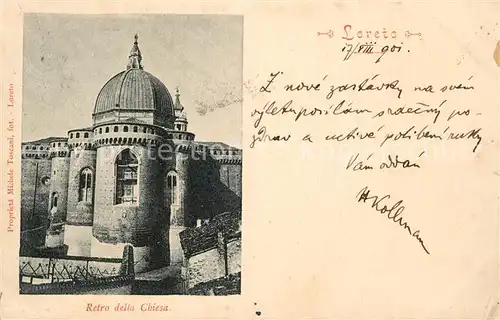 Loreto
17/VIII 901.
Z nové zastávky na svém
výletu posílám srdečný po-
zdrav a uctivé políbení ruky
Vám oddaný
HKollmann
Proprietà Michele Toscani, fot. - Loreto
Retro della Chiesa.